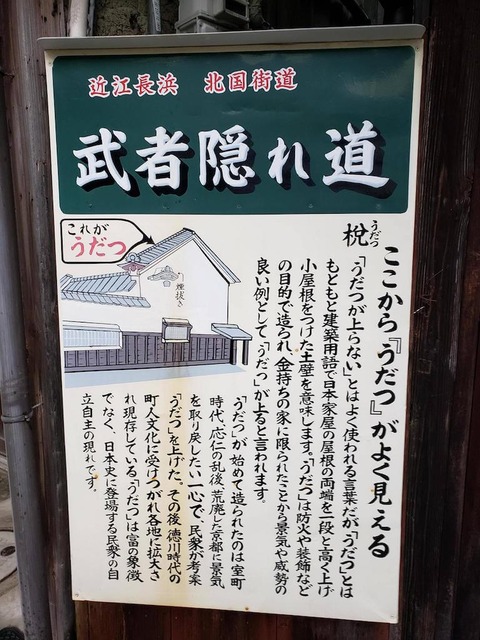 近江長浜　北国街道
武者隠れ道
これが
うだつ
煙抜き
うだつ
梲
ここから『うだつ』がよく見える
「うだつが上らない」とはよく使われる言葉だが「うだつ」とは
もともと建築用語で日本家屋の屋根の両端を一段と高く上げ
小屋根をつけた土壁を意味します。「うだつ」は防火や装飾など
の目的で造られ、金持ちの家に限られたことから景気や威勢の
良い例として「うだつ」が上ると言われます。
「うだつ」が始めて造られたのは室町
時代、応仁の乱後、荒廃した京都に景気
を取り戻したい一心で、民家が考案
「うだつ」を上げた。その後、徳川時代の
町人文化に受けつがれ各地に拡大さ
れ現存している「うだつ」は富の象徴
でなく、日本史に登場する民衆の自
立自主の現れです。